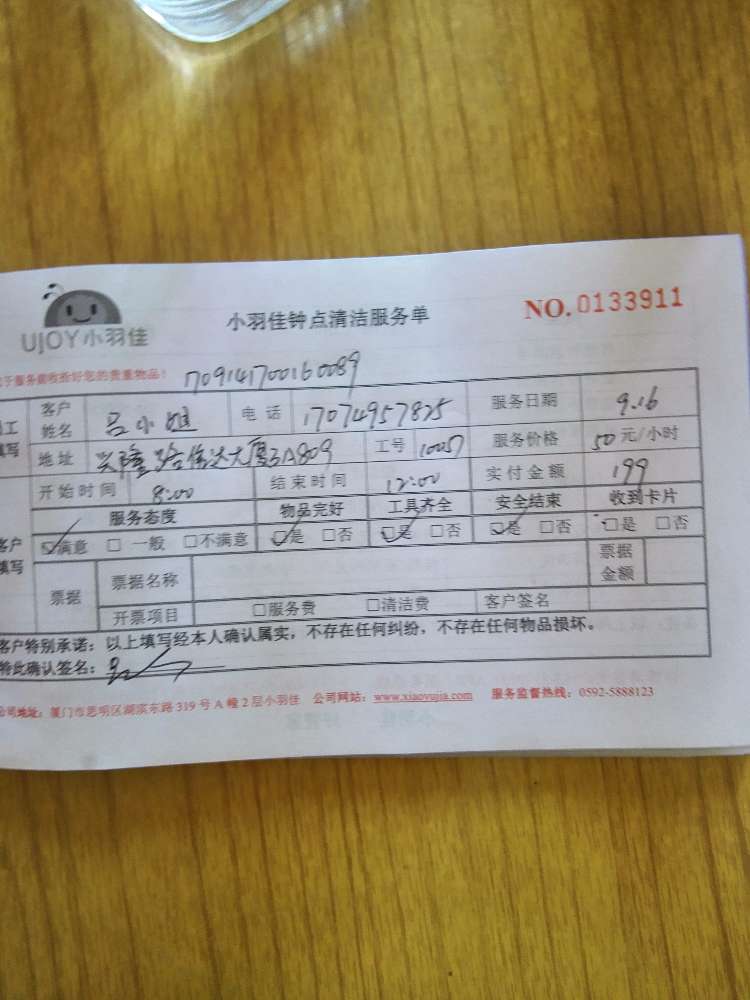 UJOY小羽佳
小羽佳钟点清洁服务单
NO.0133911
于服务前收拾好您的贵重物品！
1709141700160089
工 客户姓名 吕小姐 电话 17074957825 服务日期 9.16
填写 地址 兴隆路信达大厦3A809 工号 10057 服务价格 50元/小时
开始时间 8:00 结束时间 12:00 实付金额 199
服务态度 物品完好 工具齐全 安全结束 收到卡片
客户填写 ☑满意 □一般 □不满意 ☑是 □否 ☑是 □否 ☑是 □否 □是 □否
票据 票据名称 票据金额
开票项目 □服务费 □清洁费 客户签名
客户特别承诺：以上填写经本人确认属实，不存在任何纠纷，不存在任何物品损坏。
特此确认签名：
公司地址：厦门市思明区湖滨东路319号A幢2层小羽佳 公司网站：www.xiaoyujia.com 服务监督热线：0592-5888123